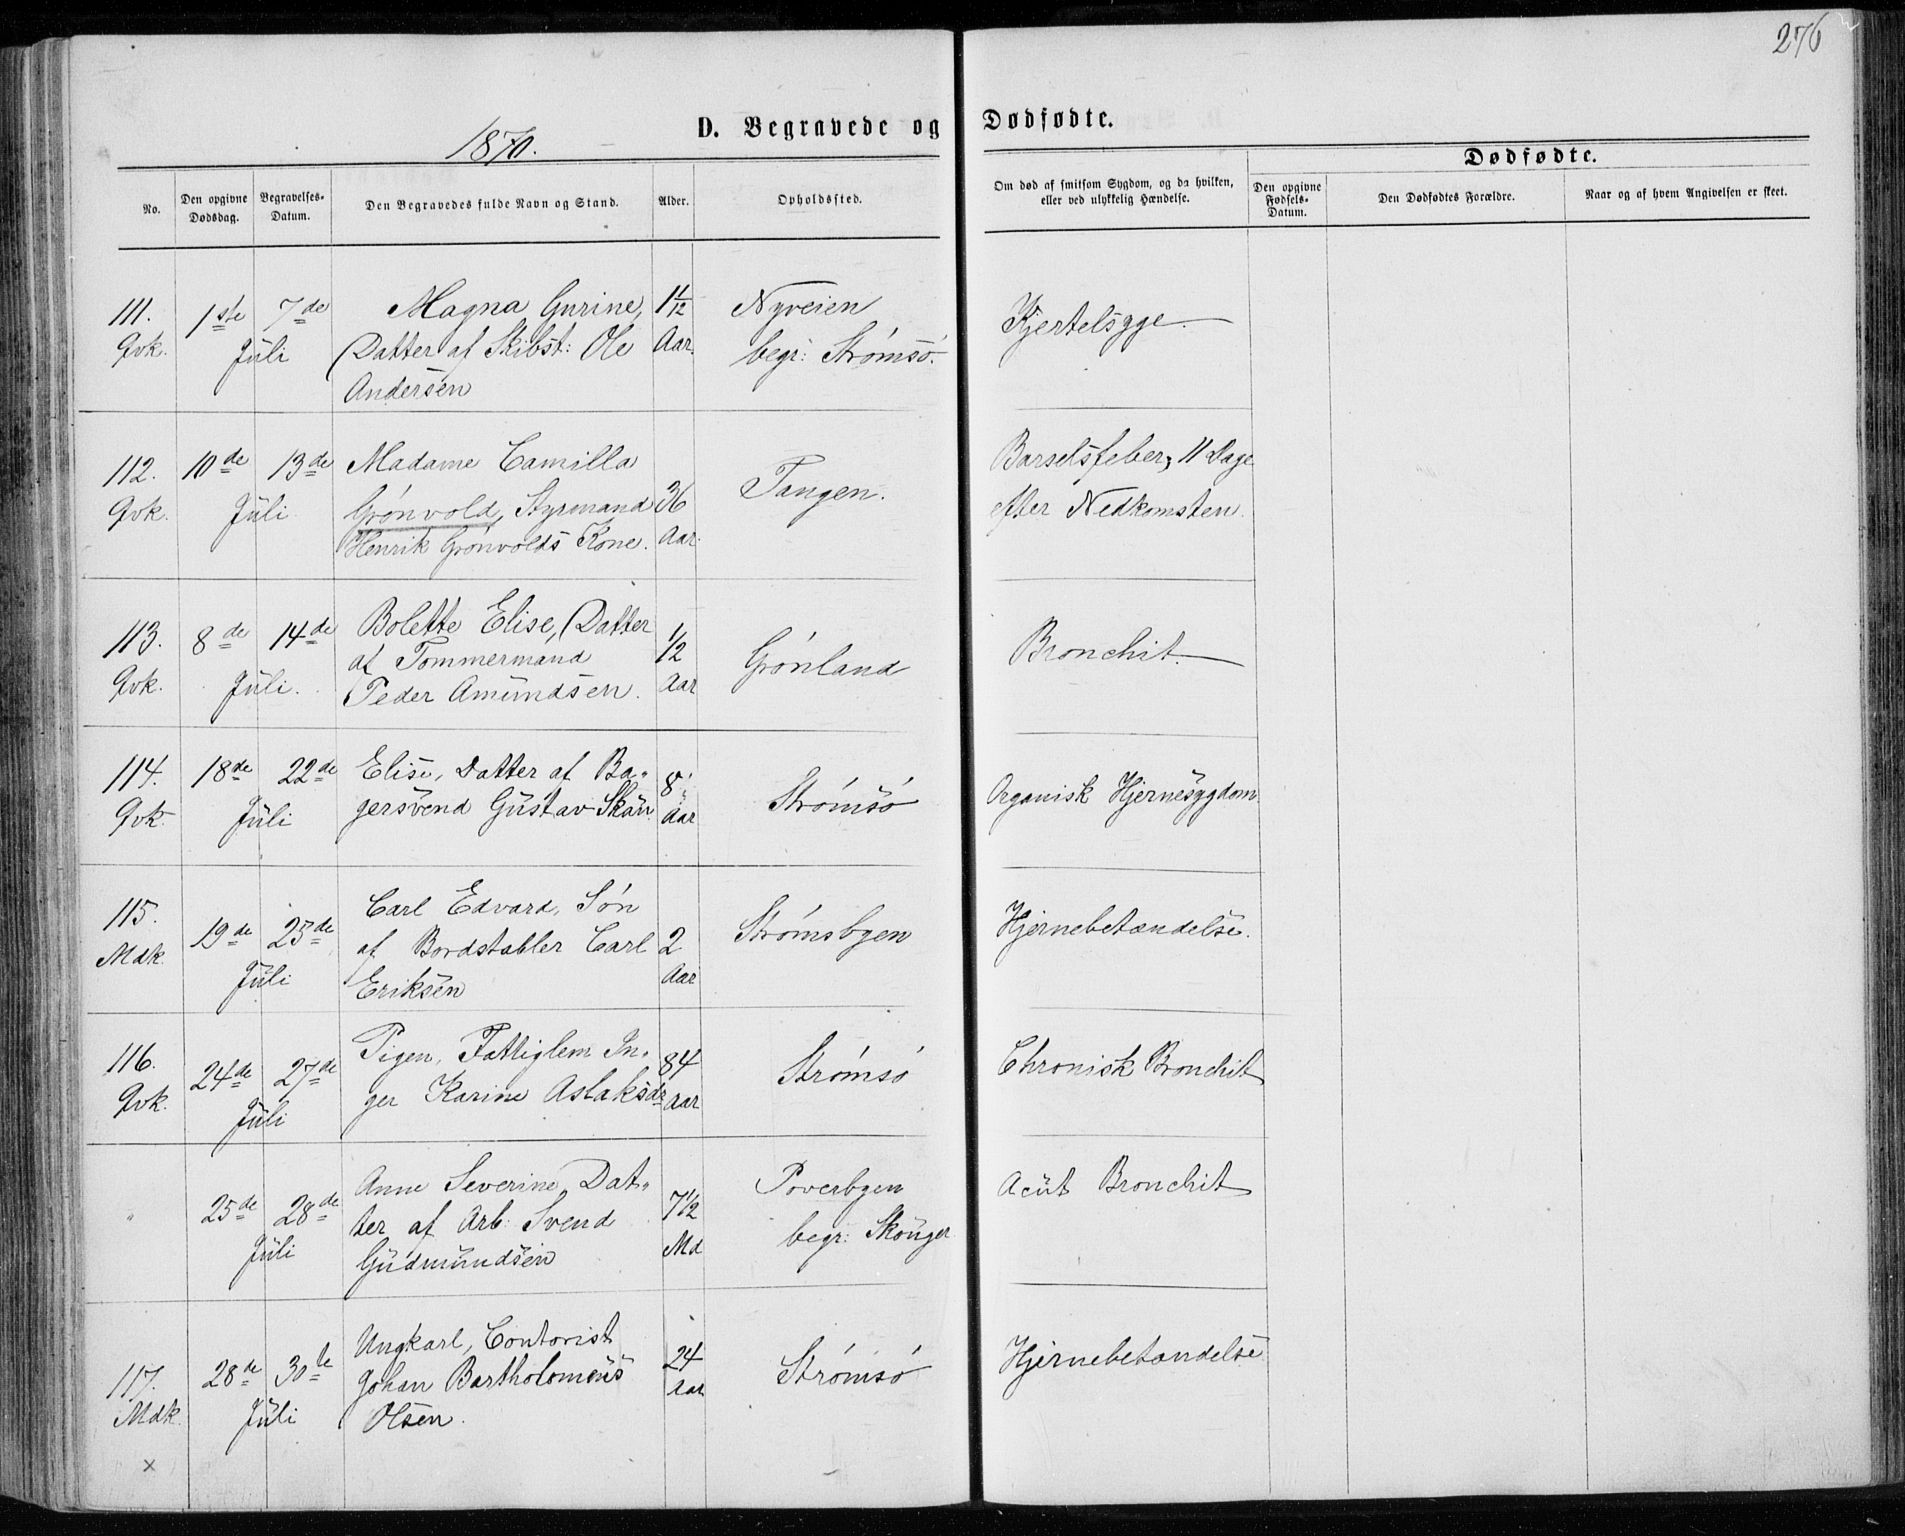 276
D. Begravede og Dødfødte.
1870.
Dødfødte.
No.
Den opgivne Dødsdag.
Begravelses-Datum.
Den Begravedes fulde Navn og Stand.
Alder.
Opholdssted.
Om død af smitsom Sygdom, og da hvilken, eller ved ulykkelig Hændelse.
Den opgivne Fødsels-Datum.
Den Dødfødtes Forældre.
Naar og af hvem Angivelsen er skeet.
111. 1ste 7de Magna Gurine, 1 4/12 Nyveien Kjertelsyge
Qvk. Juli Datter af Skibst: Ole Aar. begr: Strømsø.
Andersen
112. 10de 13de Madame Camilla Barselsfeber, 11 Dage
Qvk. Juli Grønvold, Styrmand 36 Tangen. efter Nedkomsten.
Henrik Grønvolds Kone. Aar.
113. 8de 14de Bolette Elise, Datter 1/2 Grønland Bronchit.
Qvk. Juli. af Tømmermand Aar
Peder Amundsen.
114. 18de 22de Elise, Datter af Ba- 8 Strømsø Organisk Hjernesygdom
Qvk. Juli gersvend Gustav Skau. Aar
115. 19de 25de Carl Edvard, Søn 2 Strømsbyen Hjernebetændelse.
Mdk. Juli af Bordstabler Carl Aar
Eriksen
116. 24de 27de Pigen, Fattiglem In- 84 Strømsø Chronisk Bronchit
Qvk. Juli ger Karine Aslaksdr Aar
" 25de 28de Anne Severine, Dat- 7 1/2 Poverbyen Acut Bronchit
Juli ter af Arb. Svend Md begr: Skouger
Gudmundsen
117. 28de 30te Ungkarl, Contorist 24 Strømsø Hjernebetændelse
Mdk. Juli Johan Bartholomeus Aar
Olsen.
x